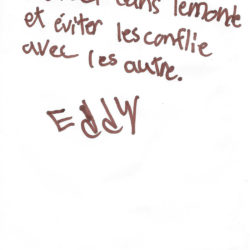 dans lemonde
et éviter les conflie
avec les autre.
Eddy